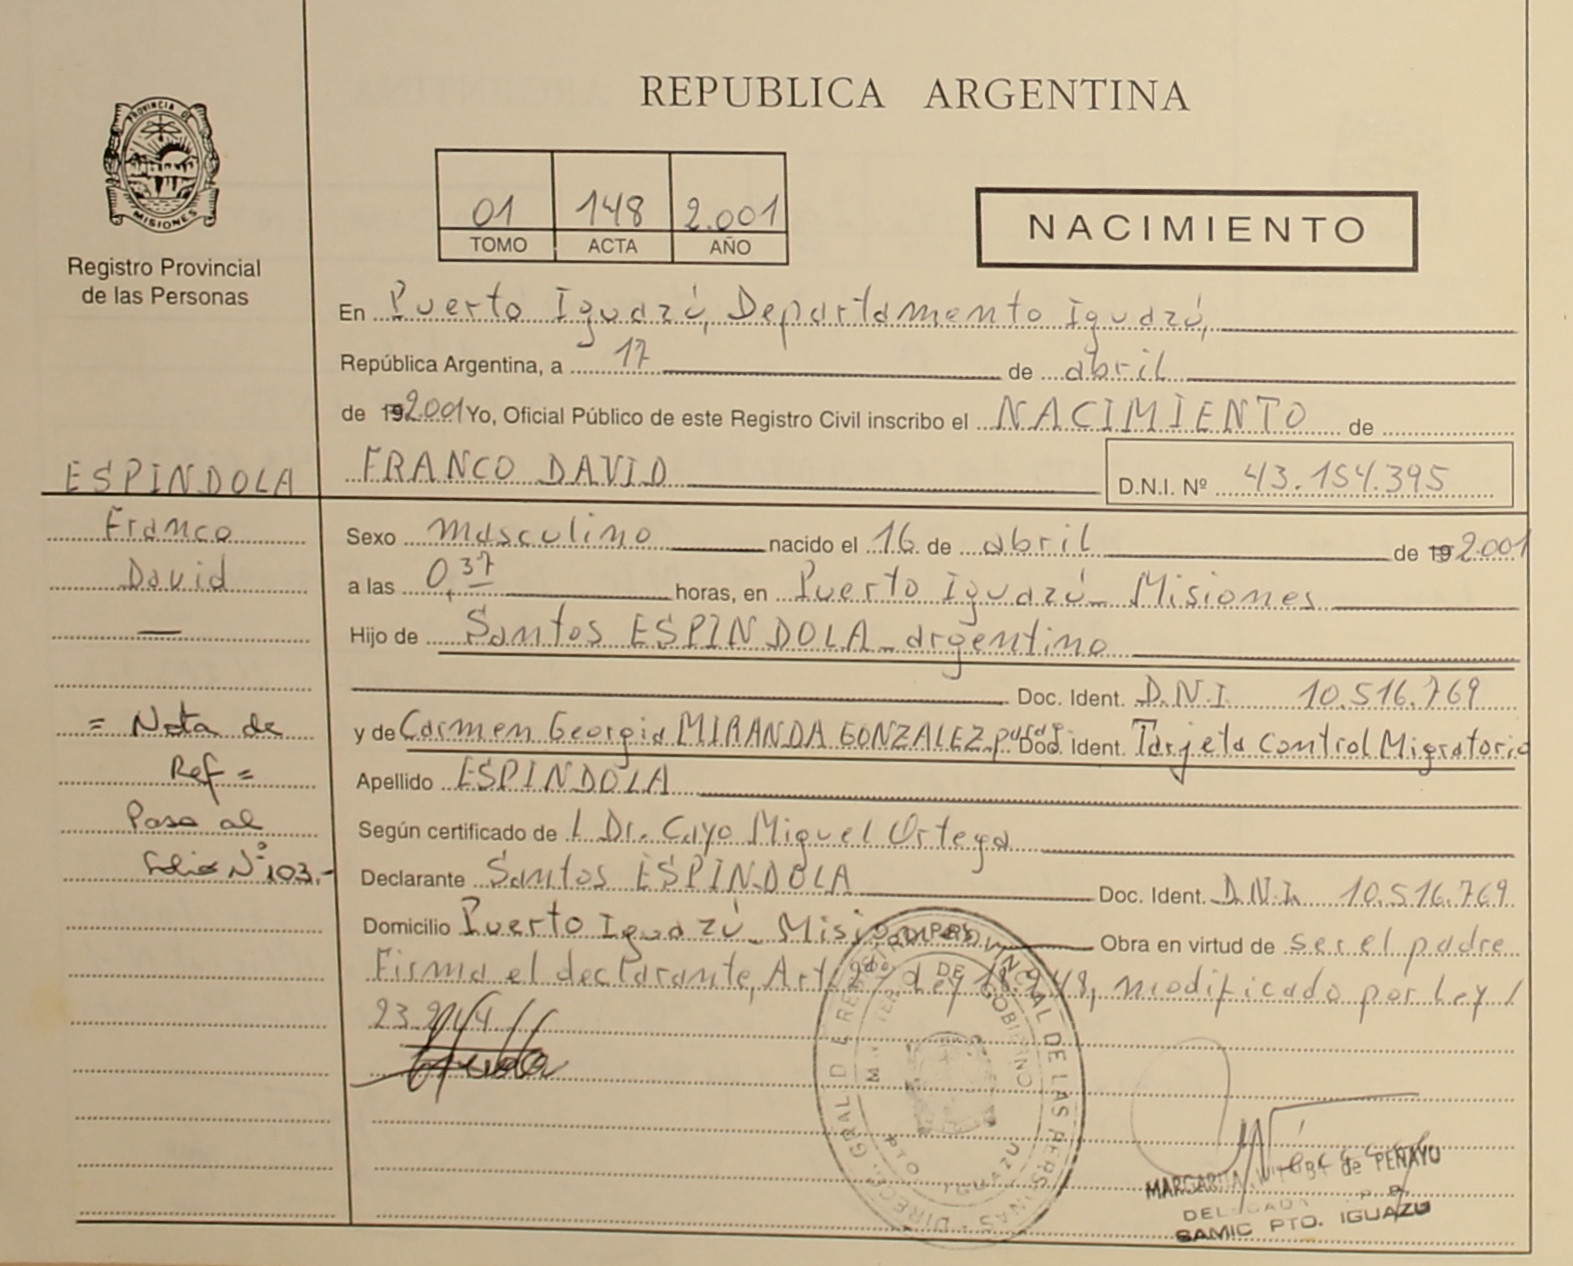 REPUBLICA ARGENTINA
PROVINCIA DE
MISIONES
Registro Provincial
de las Personas
01 148 2.001
TOMO ACTA AÑO
NACIMIENTO
En Puerto Iguazú, Departamento Iguazú,
República Argentina, a 17 de abril
de 19 2.001 Yo, Oficial Público de este Registro Civil inscribo el NACIMIENTO de
FRANCO DAVID D.N.I. Nº 43.154.395
ESPINDOLA
Franco
David
—
= Nota de
Ref =
Pasa al
folio Nº 103.-
Sexo masculino nacido el 16 de abril de 19 2.001
a las 0,37 horas, en Puerto Iguazú_ Misiones
Hijo de Santos ESPINDOLA_argentino
Doc. Ident. D.N.I. 10.516.769
y de Carmen Georgia MIRANDA GONZALEZ Doc. Ident. Tarjeta Control Migratorio
Apellido ESPINDOLA
Según certificado de / Dr. Cayo Miguel Ortega
Declarante Santos ESPINDOLA Doc. Ident. D.N.I. 10.516.769
Domicilio Puerto Iguazú_ Misiones Obra en virtud de ser el padre
Firma el declarante, Art. Ley 18.248, modificado por Ley /
DIRECC. GRAL DE REGISTRO PROVINCIAL DE LAS PERSONAS
DE GOBIERNO
DTO IGUAZU
de PENAYO
SAMIC PTO. IGUAZU